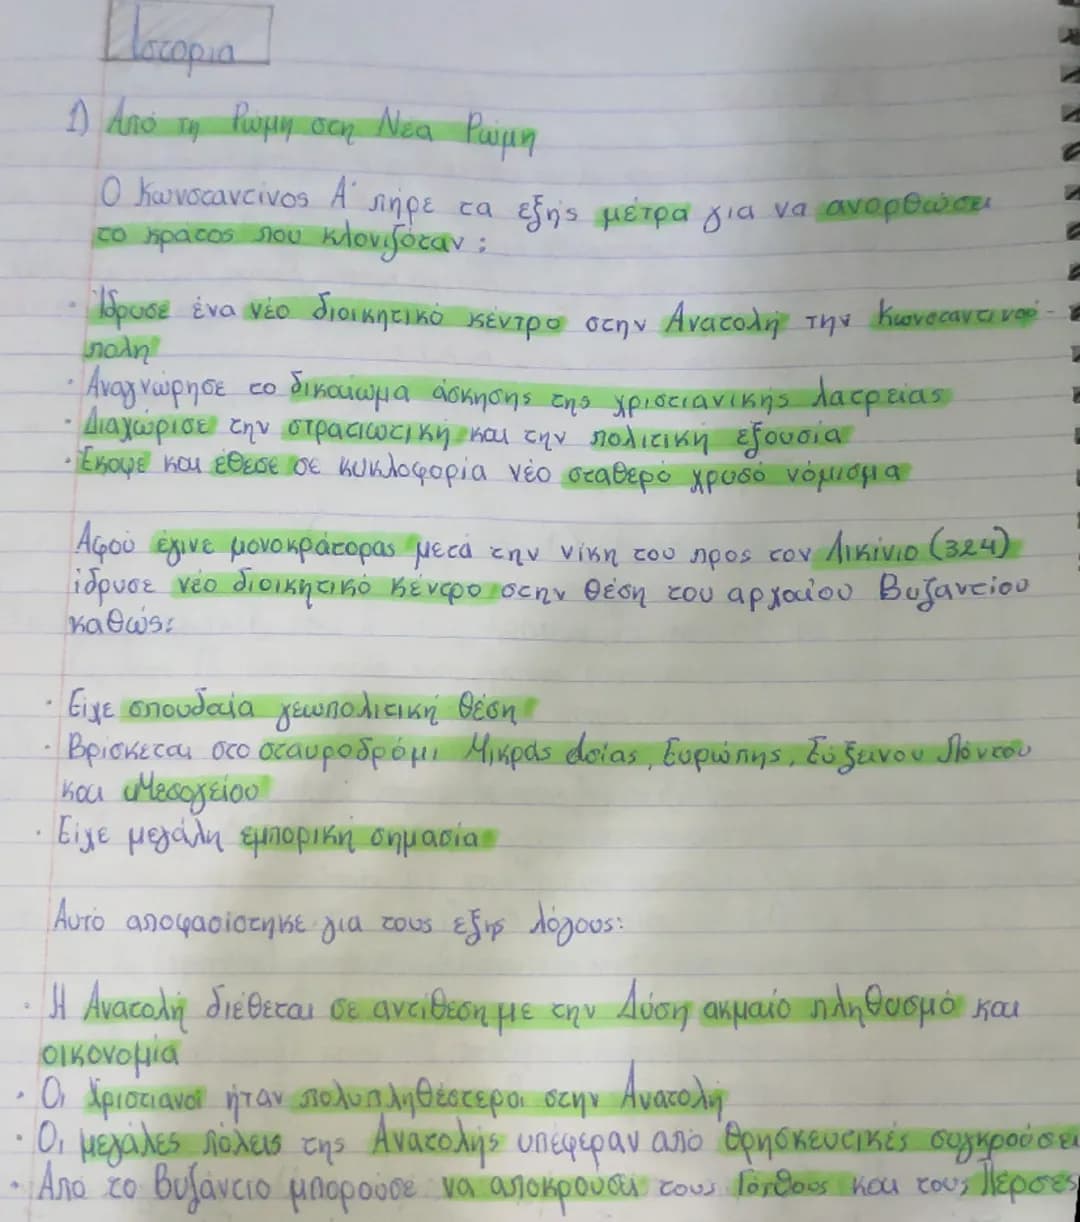 Ιστορια
1) Από τη Ρώμη στη Νέα Ρώμη
Ο Κωνσταντίνος Α΄ πήρε τα εξής μέτρα για να ανορθώσει
το κράτος που κλονιζόταν :
· Ίδρυσε ένα νέο διοικητικό κέντρο στην Ανατολή την Κωνσταντινού-
πολη
· Αναγνώρησε το δικαίωμα άσκησης της χριστιανικής λατρείας
· Διαχώρισε την στρατιωτική και την πολιτική εξουσία
· Έκοψε και έθεσε σε κυκλοφορία νέο σταθερό χρυσό νόμισμα
Αφού έγινε μονοκράτορας μετά την νίκη του προς τον Λικίνιο (324)
ίδρυσε νέο διοικητικό κέντρο στην θέση του αρχαίου Βυζαντίου
καθώς:
· Είχε σπουδαία γεωπολιτική θέση
· Βρίσκεται στο σταυροδρόμι Μικράς Ασίας, Ευρώπης, Εύξεινου Πόντου
και Μεσογείου
· Είχε μεγάλη εμπορική σημασία
Αυτό αποφασίστηκε για τους εξής λόγους:
· Η Ανατολή διέθεται σε αντίθεση με την Δύση ακμαίο πληθυσμό και
οικονομία
· Οι Χριστιανοί ήταν πολυπληθέστεροι στην Ανατολή
· Οι μεγάλες πόλεις της Ανατολής υπέφεραν από θρησκευτικές συγκρούσει
· Από το Βυζάντιο μπορούσε να αποκρούσει τους Γότθους και τους Πέρσες